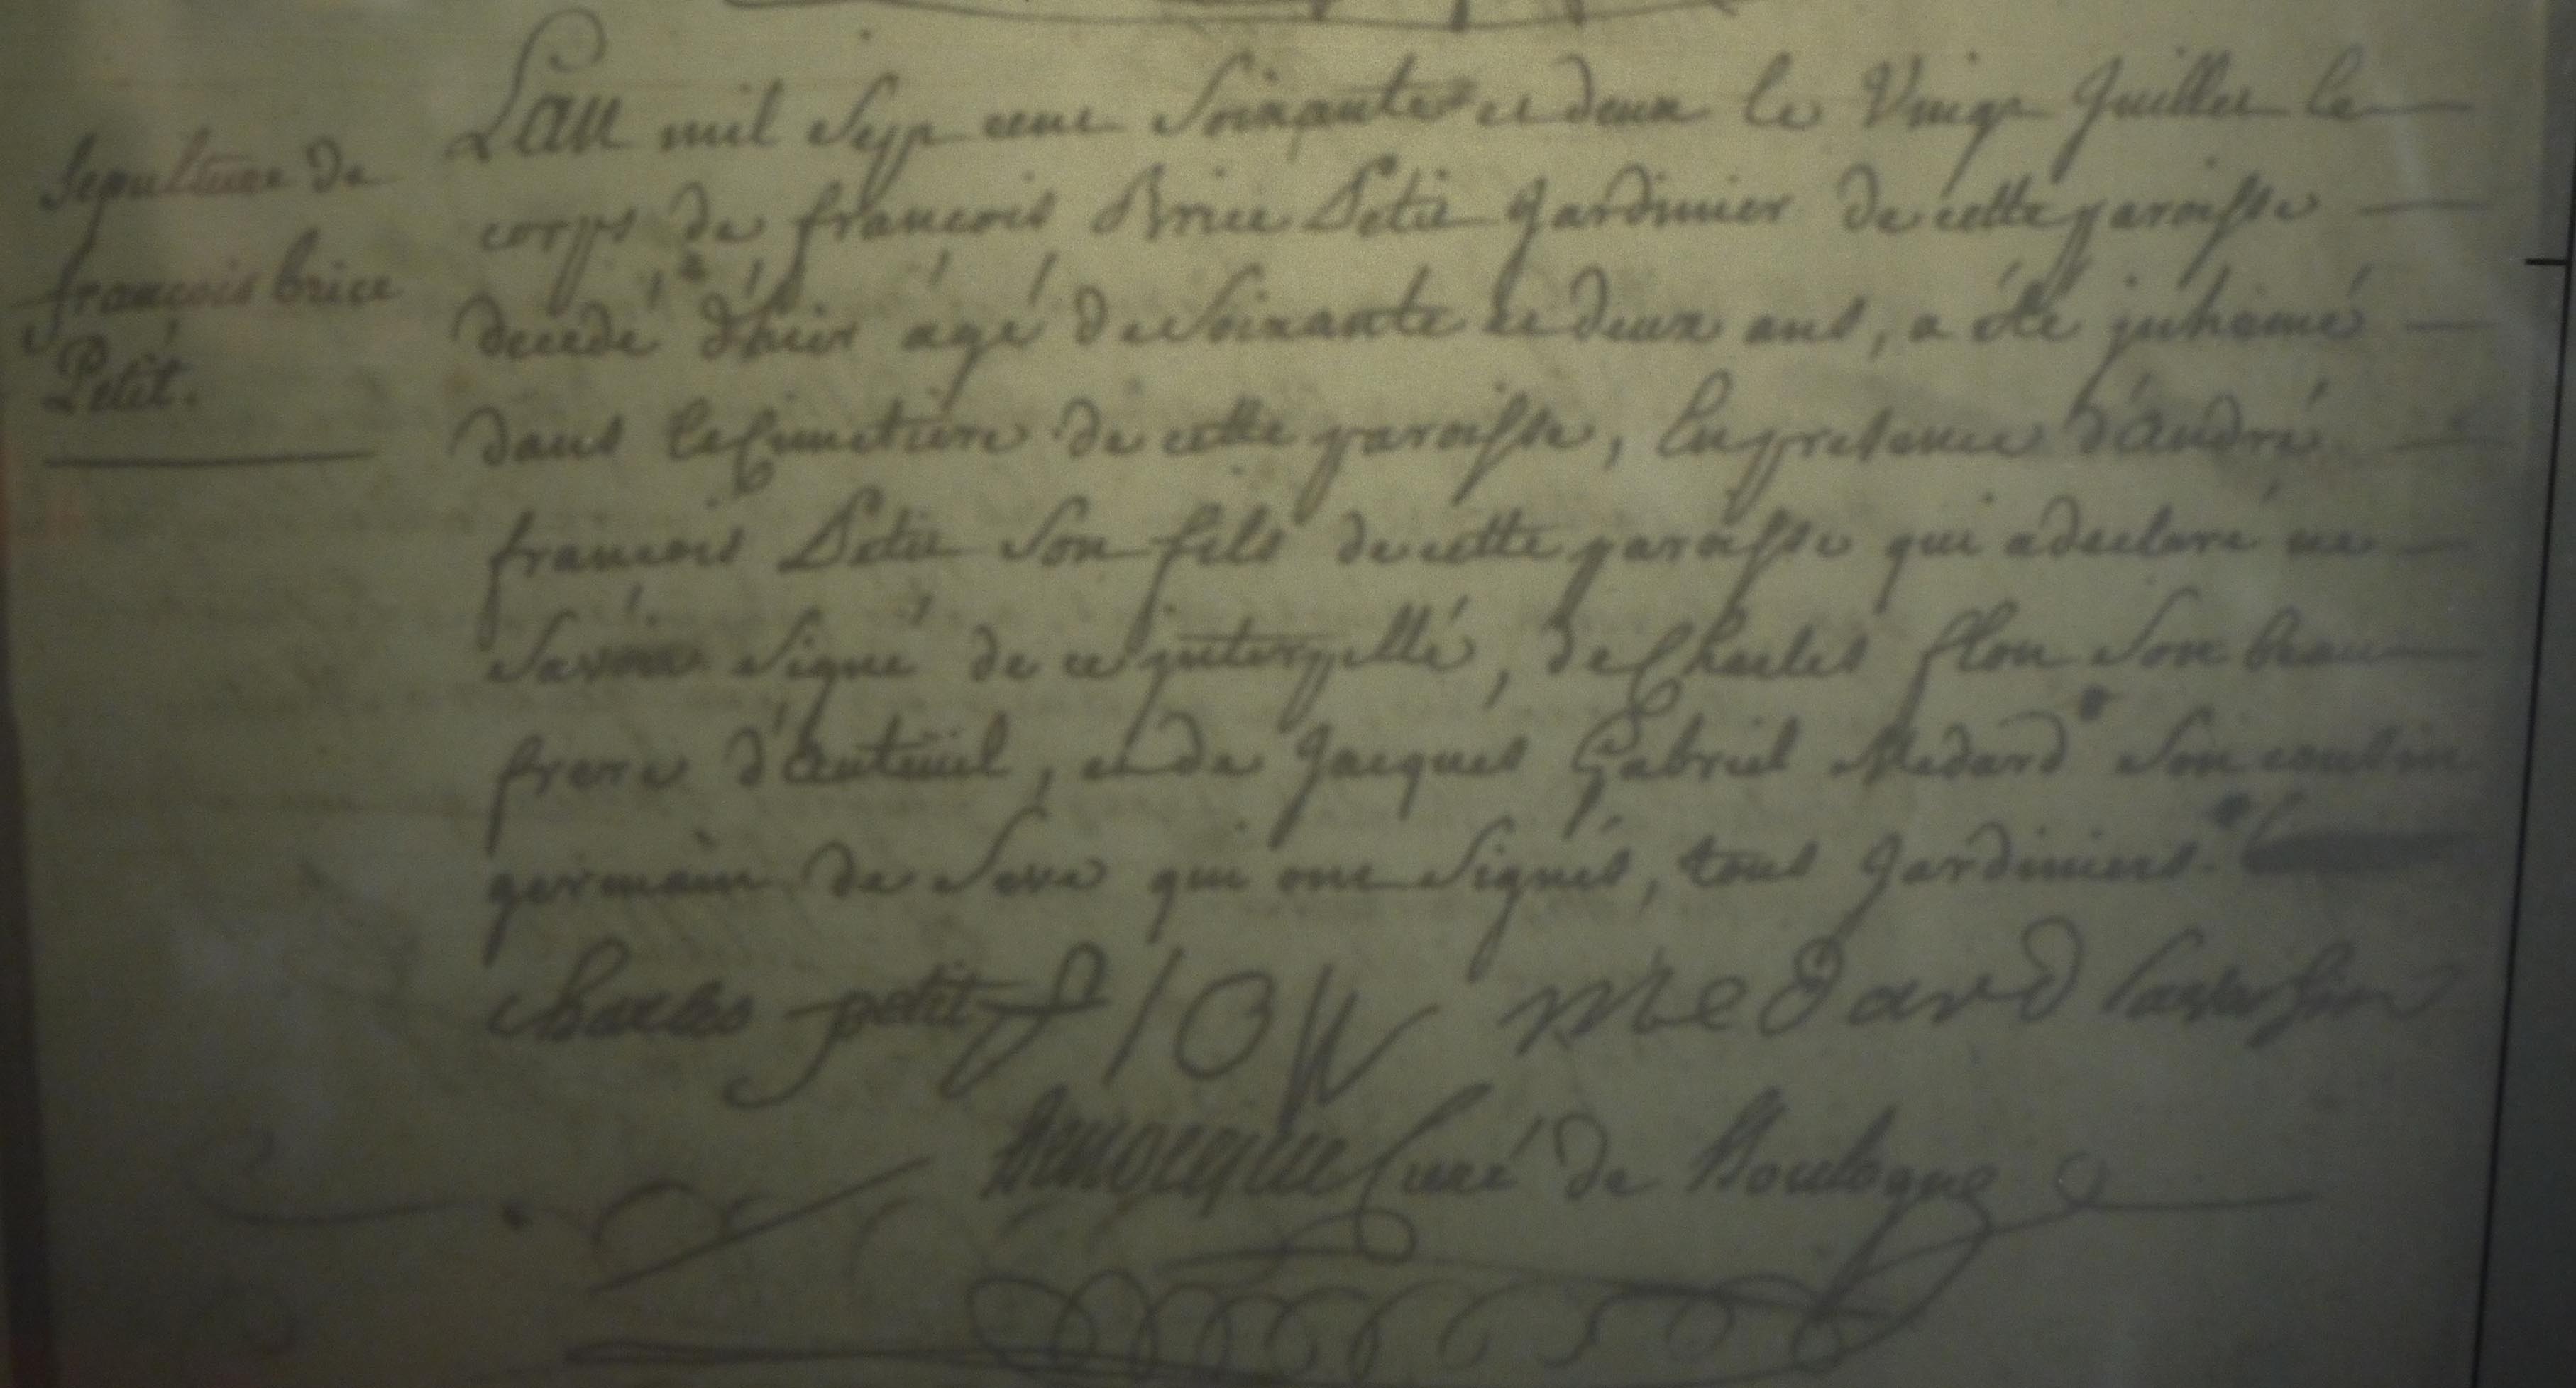 Sepulture de
francois brice
Petit.
Lan mil sept cent soixante et deux le Vingt Juillet le
corps de francois Brice Petit Jardinier de cette paroisse
decedé d'hier agé de soixante et deux ans, a été inhumé
dans le Cimetiere de cette paroisse, En presence d'andré
francois Petit son fils de cette paroisse qui a declaré ne
savoir signé de ce interpellé, de Charles flon son beau
frere d'auteüil, et de Jacques Gabriel Medard son cousin
germain de Seve qui ont signés, tous Jardiniers.
Charles petit flon Medard
Curé de Boulogne